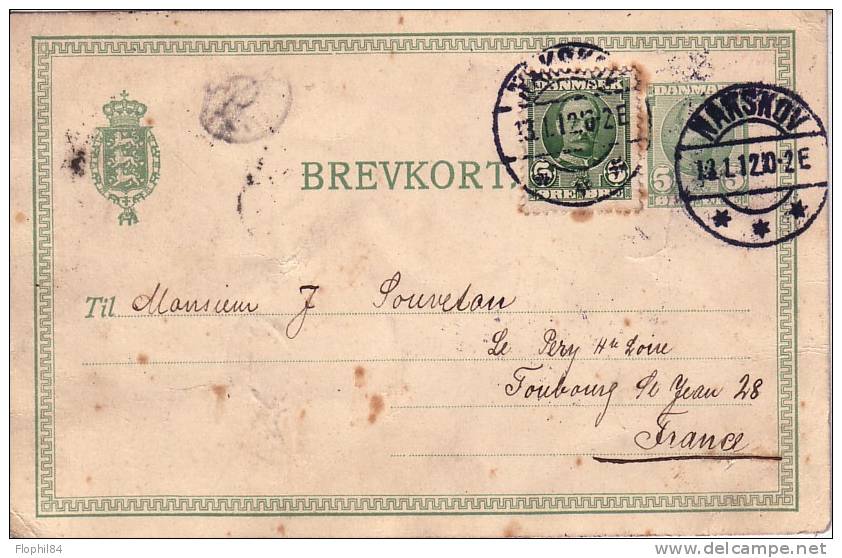 DANMARK
5 5
ØRE
NAKSKOV
13.1.12 10-2E
DANMARK
5 5
NAKSKOV
13.1.12 10-2E
BREVKORT
Til Monsieur J Souveton
Le Pery Hte Loire
Foubourg St Jean 28
France
Flophil84
delcampe.net